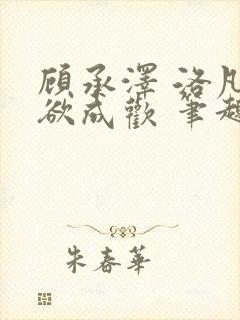 顾承澤 洛凡
欲成歡 筆趣
朱春華